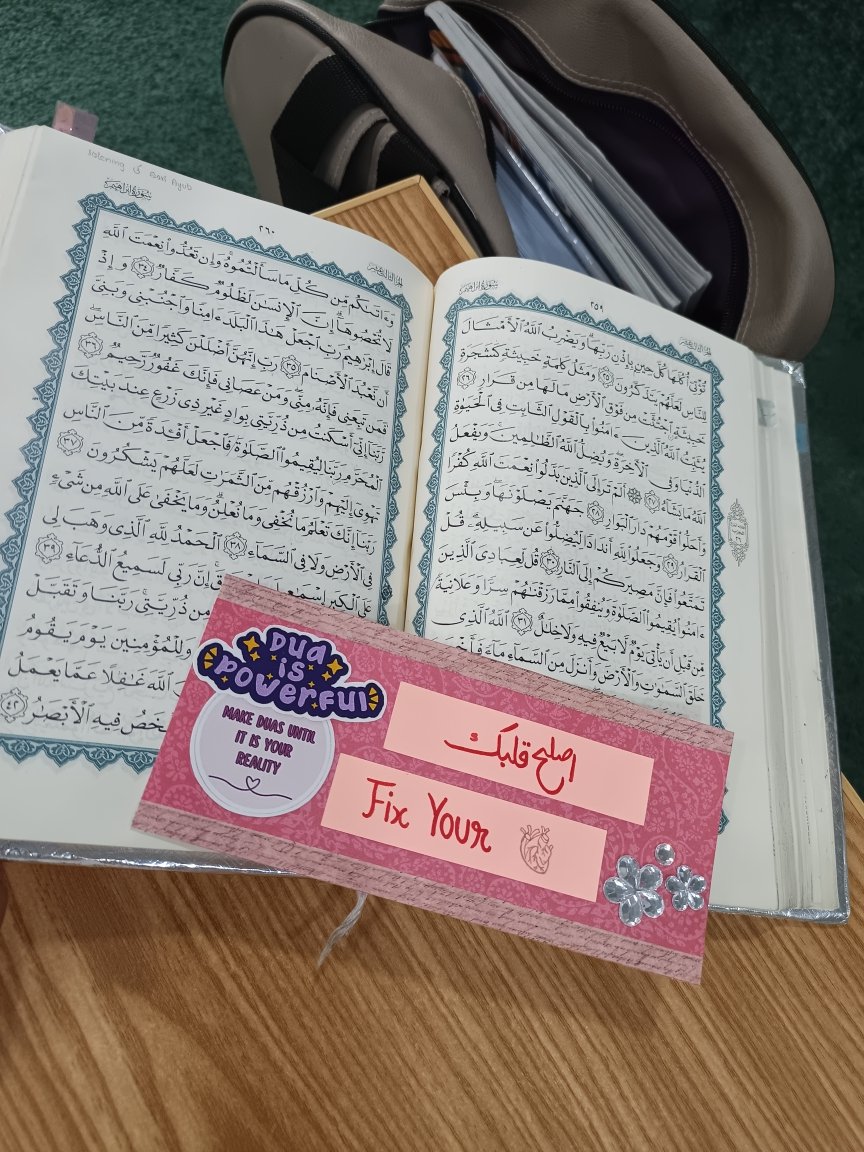 سُورَةُ إِبْرَاهِيمَ
٢٥٩
الجُزْءُ الثَّالِثَ عَشَرَ
تُؤْتِىٓ أُكُلَهَا كُلَّ حِينٍۭ بِإِذْنِ رَبِّهَاۗ وَيَضْرِبُ ٱللَّهُ ٱلْأَمْثَالَ
لِلنَّاسِ لَعَلَّهُمْ يَتَذَكَّرُونَ ٢٥ وَمَثَلُ كَلِمَةٍ خَبِيثَةٍ كَشَجَرَةٍ
خَبِيثَةٍ ٱجْتُثَّتْ مِن فَوْقِ ٱلْأَرْضِ مَا لَهَا مِن قَرَارٍ ٢٦
يُثَبِّتُ ٱللَّهُ ٱلَّذِينَ ءَامَنُوا۟ بِٱلْقَوْلِ ٱلثَّابِتِ فِى ٱلْحَيَوٰةِ
ٱلدُّنْيَا وَفِى ٱلْـَٔاخِرَةِۖ وَيُضِلُّ ٱللَّهُ ٱلظَّـٰلِمِينَۚ وَيَفْعَلُ
ٱللَّهُ مَا يَشَآءُ ٢٧ ۞ أَلَمْ تَرَ إِلَى ٱلَّذِينَ بَدَّلُوا۟ نِعْمَتَ ٱللَّهِ كُفْرًا
وَأَحَلُّوا۟ قَوْمَهُمْ دَارَ ٱلْبَوَارِ ٢٨ جَهَنَّمَ يَصْلَوْنَهَاۖ وَبِئْسَ
ٱلْقَرَارُ ٢٩ وَجَعَلُوا۟ لِلَّهِ أَندَادًا لِّيُضِلُّوا۟ عَن سَبِيلِهِۦۗ قُلْ
تَمَتَّعُوا۟ فَإِنَّ مَصِيرَكُمْ إِلَى ٱلنَّارِ ٣٠ قُل لِّعِبَادِىَ ٱلَّذِينَ
ءَامَنُوا۟ يُقِيمُوا۟ ٱلصَّلَوٰةَ وَيُنفِقُوا۟ مِمَّا رَزَقْنَـٰهُمْ سِرًّا وَعَلَانِيَةً
مِّن قَبْلِ أَن يَأْتِىَ يَوْمٌ لَّا بَيْعٌ فِيهِ وَلَا خِلَـٰلٌ ٣١ ٱللَّهُ ٱلَّذِى
خَلَقَ ٱلسَّمَـٰوَٰتِ وَٱلْأَرْضَ وَأَنزَلَ مِنَ ٱلسَّمَآءِ مَآءً فَأَخْرَجَ
listening to Qari Ayub
سُورَةُ إِبْرَاهِيمَ
٢٦٠
الجُزْءُ الثَّالِثَ عَشَرَ
وَءَاتَىٰكُم مِّن كُلِّ مَا سَأَلْتُمُوهُۚ وَإِن تَعُدُّوا۟ نِعْمَتَ ٱللَّهِ
لَا تُحْصُوهَآۗ إِنَّ ٱلْإِنسَـٰنَ لَظَلُومٌ كَفَّارٌ ٣٤ وَإِذْ
قَالَ إِبْرَٰهِيمُ رَبِّ ٱجْعَلْ هَـٰذَا ٱلْبَلَدَ ءَامِنًا وَٱجْنُبْنِى وَبَنِىَّ
أَن نَّعْبُدَ ٱلْأَصْنَامَ ٣٥ رَبِّ إِنَّهُنَّ أَضْلَلْنَ كَثِيرًا مِّنَ ٱلنَّاسِۖ
فَمَن تَبِعَنِى فَإِنَّهُۥ مِنِّىۖ وَمَنْ عَصَانِى فَإِنَّكَ غَفُورٌ رَّحِيمٌ ٣٦
رَّبَّنَآ إِنِّىٓ أَسْكَنتُ مِن ذُرِّيَّتِى بِوَادٍ غَيْرِ ذِى زَرْعٍ عِندَ بَيْتِكَ
ٱلْمُحَرَّمِ رَبَّنَا لِيُقِيمُوا۟ ٱلصَّلَوٰةَ فَٱجْعَلْ أَفْـِٔدَةً مِّنَ ٱلنَّاسِ
تَهْوِىٓ إِلَيْهِمْ وَٱرْزُقْهُم مِّنَ ٱلثَّمَرَٰتِ لَعَلَّهُمْ يَشْكُرُونَ ٣٧
رَبَّنَآ إِنَّكَ تَعْلَمُ مَا نُخْفِى وَمَا نُعْلِنُۗ وَمَا يَخْفَىٰ عَلَى ٱللَّهِ مِن شَىْءٍ
فِى ٱلْأَرْضِ وَلَا فِى ٱلسَّمَآءِ ٣٨ ٱلْحَمْدُ لِلَّهِ ٱلَّذِى وَهَبَ لِى
عَلَى ٱلْكِبَرِ إِسْمَـٰعِيلَ إِنَّ رَبِّى لَسَمِيعُ ٱلدُّعَآءِ ٣٩
مِن ذُرِّيَّتِىۚ رَبَّنَا وَتَقَبَّلْ
وَلِلْمُؤْمِنِينَ يَوْمَ يَقُومُ
ٱللَّهَ غَـٰفِلًا عَمَّا يَعْمَلُ
تَشْخَصُ فِيهِ ٱلْأَبْصَـٰرُ ٤٢
DUA
is
POWERFUL
MAKE DUAS UNTIL
IT IS YOUR
REALITY
اصلح قلبك
Fix Your